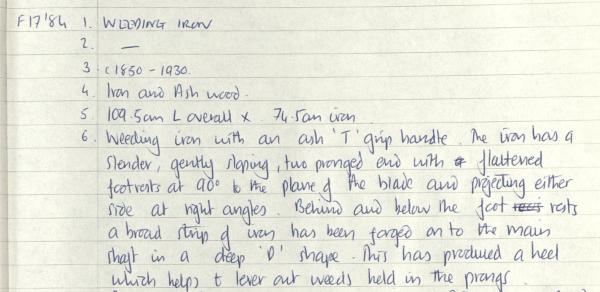 F17'84 1. WEEDING IRON
2. —
3. c1850-1930.
4. Iron and Ash wood.
5 109.5cm L overall x 74.5cm iron
6. Weeding iron with an ash 'T' grip handle. The iron has a
slender, gently sloping, two pronged end with flattened
footrests at 90° to the plane of the blade and projecting either
side at right angles. Behind and below the foot rests
a broad strip of iron has been forged on to the main
shaft in a deep 'D' shape. This has produced a heel
which helps t lever out weeds held in the prongs